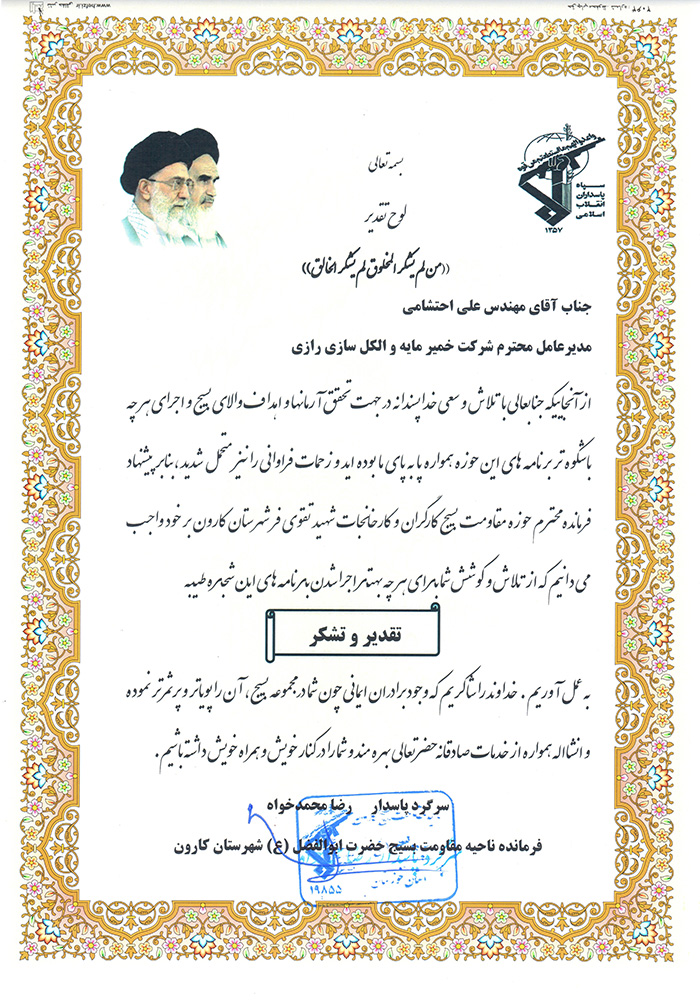 www.hofzi.ir
بسمه تعالی
لوح تقدیر
سپاه
پاسداران
انقلاب
اسلامی
۱۳۵۷
((من لم یشکر المخلوق لم یشکر الخالق))
جناب آقای مهندس علی احتشامی
مدیرعامل محترم شرکت خمیر مایه و الکل سازی رازی
از آنجاییکه جنابعالی با تلاش و سعی خداپسندانه در جهت تحقق آرمانها و اهداف والای بسیج و اجرای هرچه
باشکوه تر برنامه های این حوزه همواره پا به پای ما بوده اید و زحمات فراوانی را نیز متحمل شدید، بنابر پیشنهاد
فرمانده محترم حوزه مقاومت بسیج کارگران و کارخانجات شهید تقوی فر شهرستان کارون بر خود واجب
می دانیم که از تلاش و کوشش شما برای هرچه بهتر اجرا شدن برنامه های این شجره طیبه
تقدیر و تشکر
به عمل آوریم. خداوند را شاکریم که وجود برادران ایمانی چون شما در مجموعه بسیج، آن را پویاتر و پرثمرتر نموده
و انشااله همواره از خدمات صادقانه حضرتعالی بهره مند و شما را در کنار خویش و همراه خویش داشته باشیم.
سرگرد پاسدار رضا محمدخواه
فرمانده ناحیه مقاومت بسیج حضرت ابوالفضل (ع) شهرستان کارون
۱۹۸۵۵